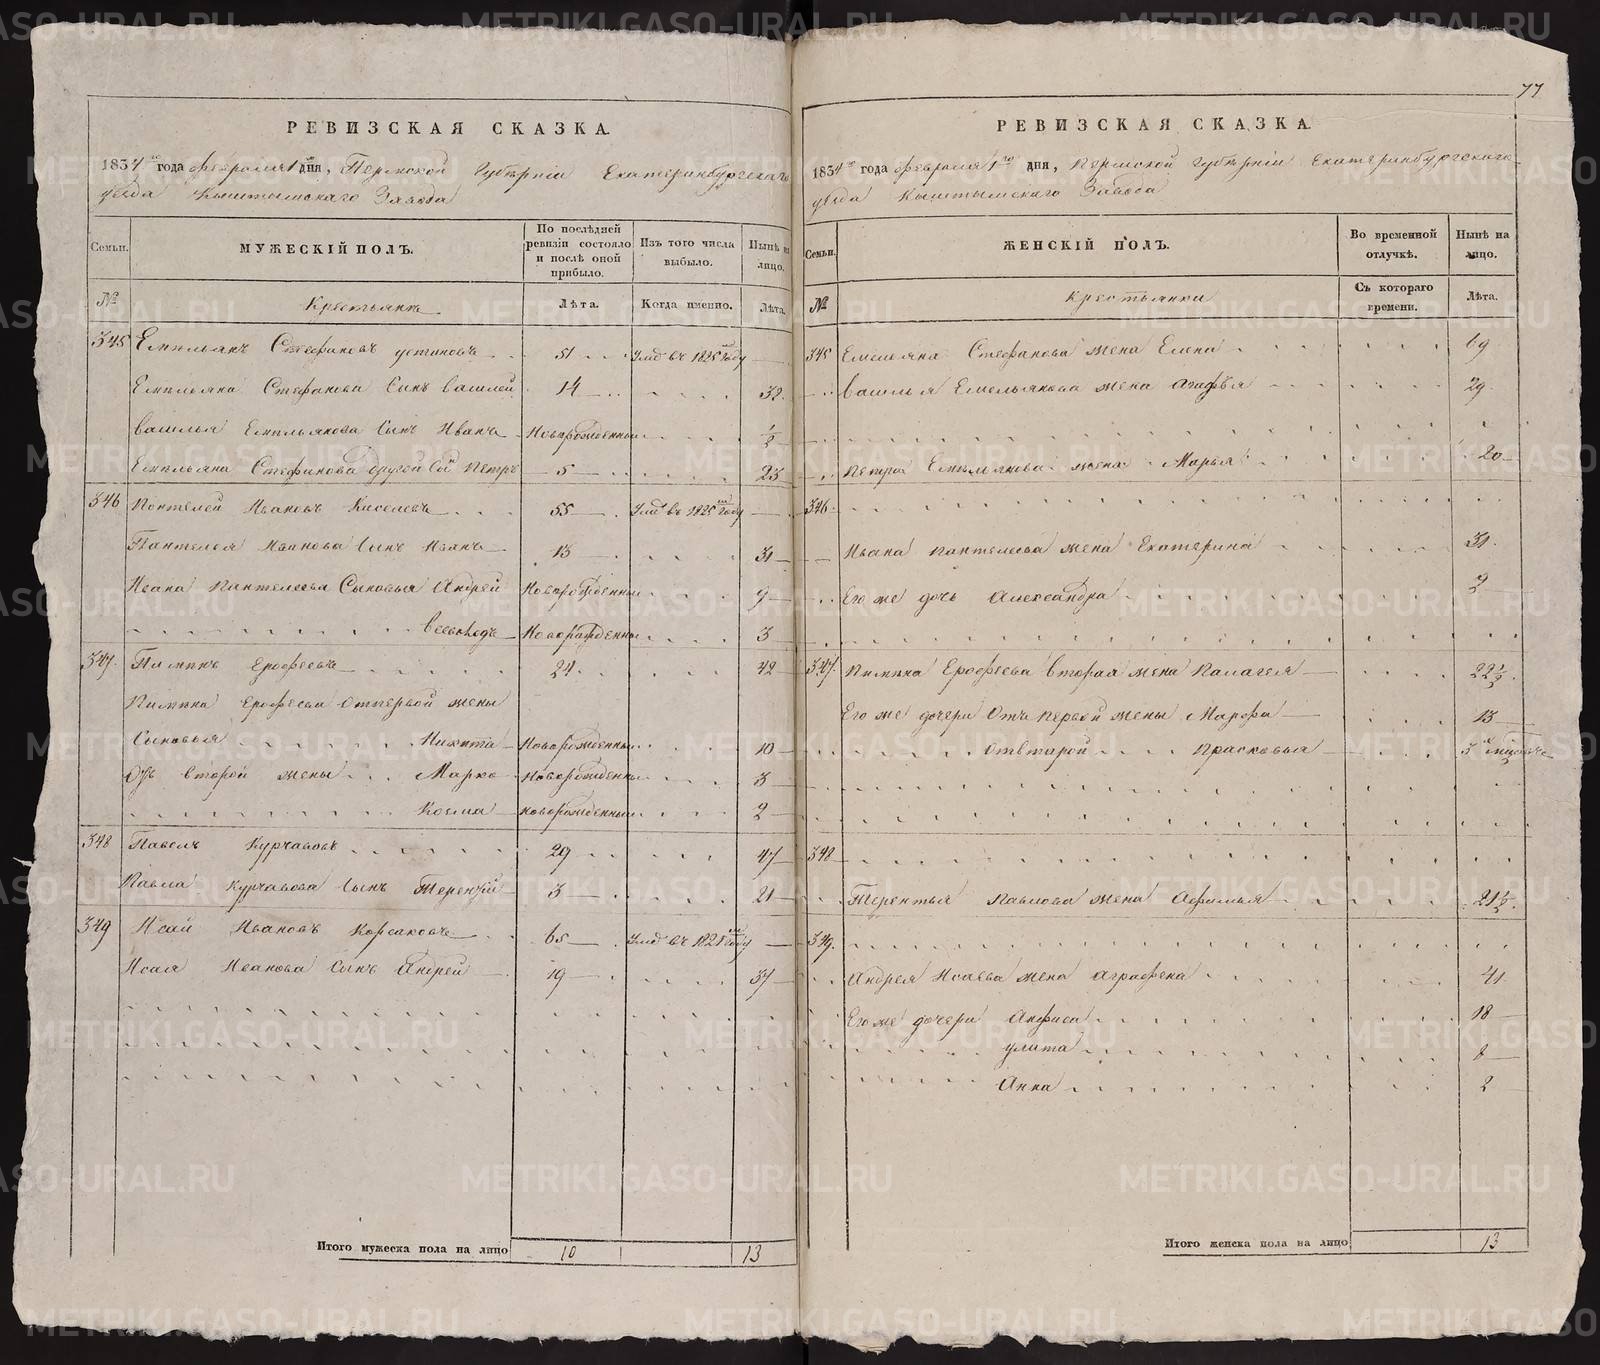 77
РЕВИЗСКАЯ СКАЗКА.
1834 го года февраля 1 го дня, Пермской Губернiи Екатеринбургскаго
уезда Кыштымскаго Завода
Семьи. МУЖЕСКIЙ ПОЛЪ. По послѣдней ревизiи состояло и послѣ оной прибыло. Изъ того числа выбыло. Нынѣ на лицо.
№ Крестьянъ Лѣта. Когда именно. Лѣта.
345 Емельянъ Стефановъ Устиновъ 51 Умд въ 1825 году
Емельяна Стефанова Сынъ Василей 14 32
Василья Емельянова Сынъ Иванъ Новорожденный 1/2
Емельяна Стефанова другой Сн Петръ 5 23
346 Понтелей Ивановъ Киселевъ 55 Умд въ 1825 году
Пантелея Иванова Сынъ Иванъ 13 31
Ивана Пантелеева Сыновья Андрей Новорожденный 9
Всеволодъ Новорожденный 3
347 Пиминъ Ерофеевъ 24 42
Пимина Ерофеева Отпервой жены
Сыновья Никита Новорожденный 10
Отъ второй жены Марко Новорожденный 3
Козма новорожденный 2
348 Павелъ Курчавовъ 29 47
Павла Курчавова Сынъ Терентiй 3 21
349 Исай Ивановъ Корсаковъ 65 Умд въ 1828 году
Исая Иванова Сынъ Андрей 19 37
Итого мужеска пола на лицо 10 13
РЕВИЗСКАЯ СКАЗКА.
1834 го года февраля 1 го дня, Пермской Губернiи Екатеринбургскаго
уезда Кыштымскаго Завода
Семьи. ЖЕНСКIЙ ПОЛЪ. Во временной отлучкѣ. Нынѣ на лицо.
№ Крестьянки Съ котораго времени. Лѣта.
345 Емельяна Стефанова жена Елена 69
Василья Емельянова жена Агафья 29
Петра Емельянова жена Марья 20
346
Ивана Пантелеева жена Екатерина 31
Его же дочь Александра 2
347 Пимина Ерофеева вторая жена Палагея 22 1/2
Его же дочери Отъ первой жены Марфа 13
Отвторой Прасковья 3
348
Терентья Павлова жена Афимья 21 1/2
349
Андрея Исаева жена Аграфена 41
Его же дочери Анфиса 18
Улита 8
Анна 2
Итого женска пола на лицо 13
METRIKI.GASO-URAL.RU